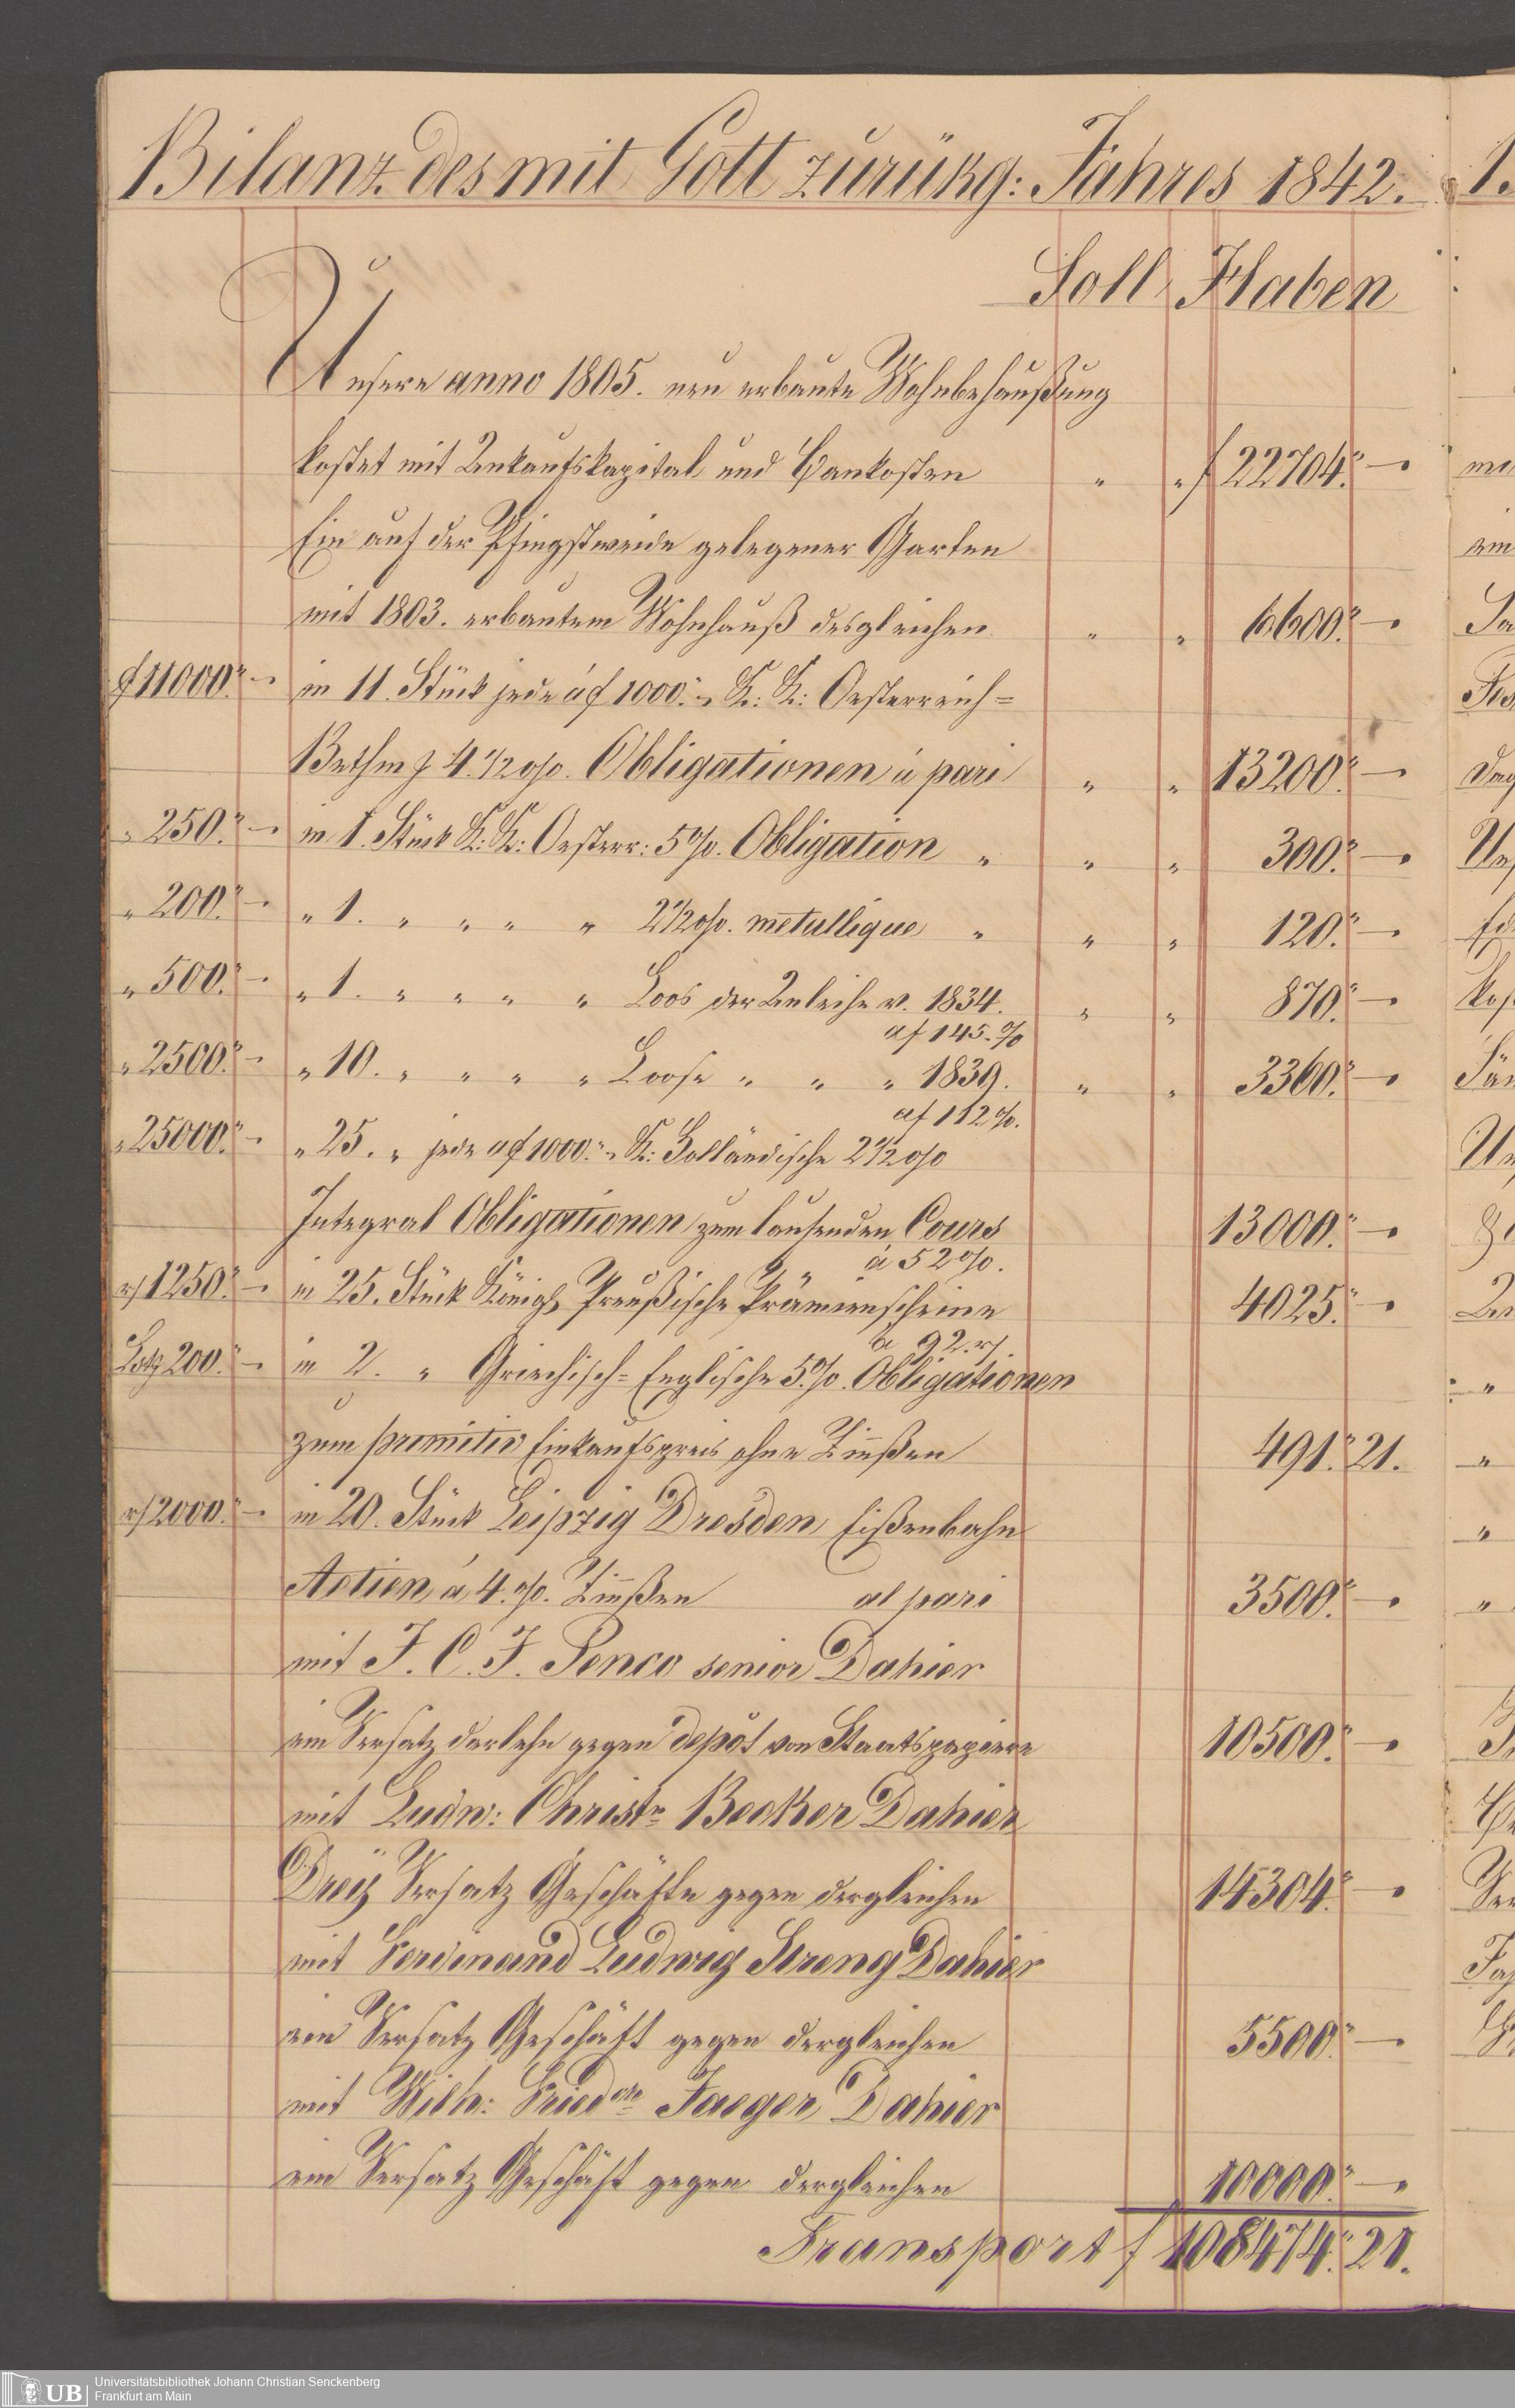 Bilanz des mit Gott zurükg: Jahres 1842.
Soll Haben
Unsere anno 1805. neu erbaute Wohnbehaußung
kostet mit Ankaufskapital und Baukosten " " f 22704." —
Ein auf der Pfingstweide gelegener Garten
mit 1803. erbautem Wohnhauß desgleichen " " 6600." —
f 11000." — in 11. Stück jede á f 1000." K: K: Oesterreich=
Bethm 4.1/2 o/o. Obligationen á pari " " 13200." —
" 250." — in 1. Stück K: K: Oesterr: 5 o/o. Obligation " " " 300." —
" 200." — " 1. " " " " 2 1/2 o/o. metallique " " " 120." —
" 500." — " 1. " " " " Loos der Anleihe v. 1834. " " 870." —
af 145. %
" 2500." — " 10. " " " " Loose " " " 1839. " " 3360." —
af 112 %.
" 25000." — " 25. " jede a f 1000." K: Holländische 2 1/2 o/o
Integral Obligationen zum laufenden Cours 13000." —
á 52 o/o.
1250." — in 25. Stück Königl Preußische Prämienscheine 4025." —
a 92.
200." — in 2. " Griechisch=Englische 5. o/o. Obligationen
zum promitiv Einkaufspreis ohne Zinßen 491." 21.
2000." — in 20. Stück Leipzig Dresden Eißenbahn
Actien á 4. o/o. Zinßen al pari 3500." —
mit J. C. J. Penco senior Dahier
ein Versatz darlehn gegen depôt von Staatspapiere 10500." —
mit Ludw: Christn Becker Dahier
Dreÿ Versatz Geschäfte gegen dergleichen 14304." —
mit Ferdinand Ludwig Streng Dahier
ein Versatz Geschäft gegen dergleichen 5500." —
mit Wilh: Friedch Jaeger Dahier
ein Versatz Geschäft gegen dergleichen 10000." —
Transport f 108474." 21.
UB Universitätsbibliothek Johann Christian Senckenberg
Frankfurt am Main